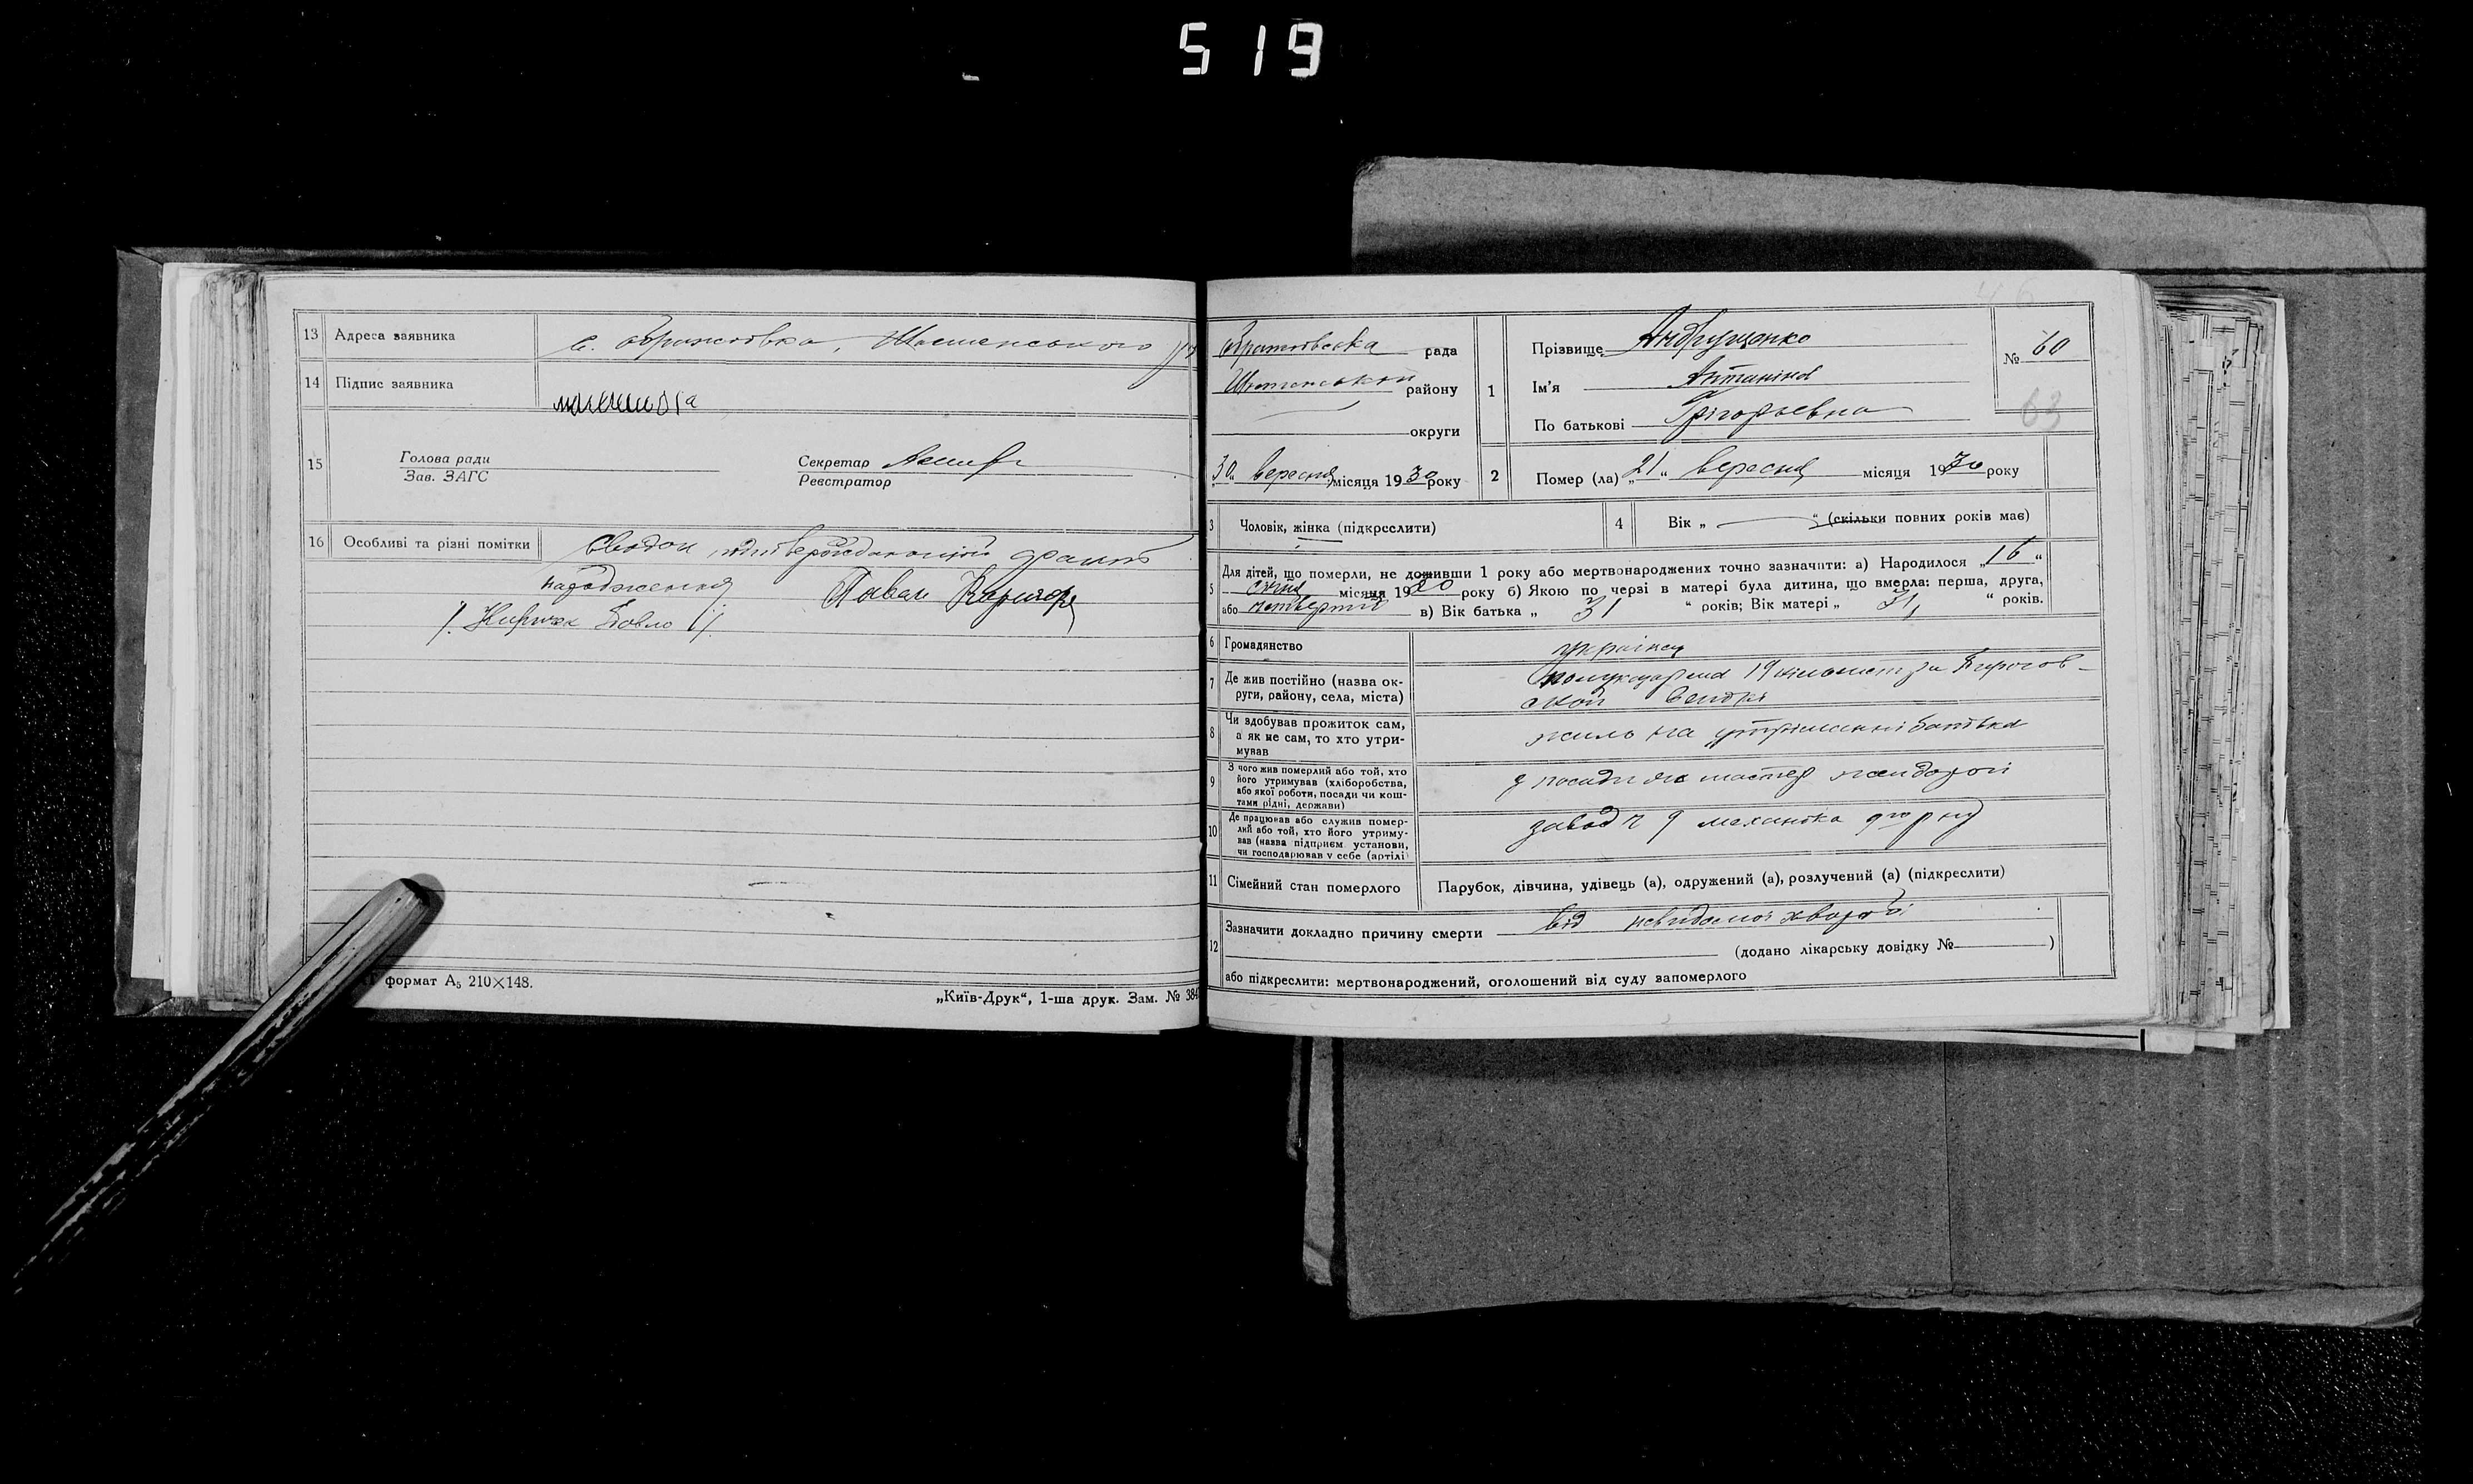 519
13 Адреса заявника
с. Ображіївка, Шостенського р
14 Підпис заявника
15 Голова ради
Зав. ЗАГС
Секретар
Реєстратор
16 Особливі та різні помітки
народження
Павел
формат А₅ 210×148.
„Київ-Друк“, 1-ша друк. Зам. № 384
рада
району
округи
1 Прізвище Андрущенко
Ім’я Антаніна
По батькові Грігорьевна
№ 60
63
„30“ вересня місяця 1930 року
2 Помер (ла) „21“ вересня місяця 1930 року
3 Чоловік, жінка (підкреслити)
4 Вік „ “ (скільки повних років має)
5 Для дітей, що померли, не доживши 1 року або мертвонароджених точно зазначити: а) Народилося „16“
січня місяця 1930 року б) Якою по черзі в матері була дитина, що вмерла: перша, друга,
або четверта в) Вік батька „31“ років; Вік матері „31“ років.
6 Громадянство українка
7 Де жив постійно (назва ок-
руги, району, села, міста)
8 Чи здобував прожиток сам,
а як не сам, то хто утри-
мував
жила на утріманні батька
9 З чого жив померлий або той, хто
його утримував (хліборобства,
або якої роботи, посади чи кош-
тами рідні, держави)
10 Де працював або служив помер-
лий або той, хто його утриму-
вав (назва підприєм. установи,
чи господарював у себе (артілі)
завод № 9 механика
11 Сімейний стан померлого
Парубок, дівчина, удівець (а), одружений (а), розлучений (а) (підкреслити)
12 Зазначити докладно причину смерти від невидомоі хвороби
(додано лікарську довідку № )
або підкреслити: мертвонароджений, оголошений від суду запомерлого